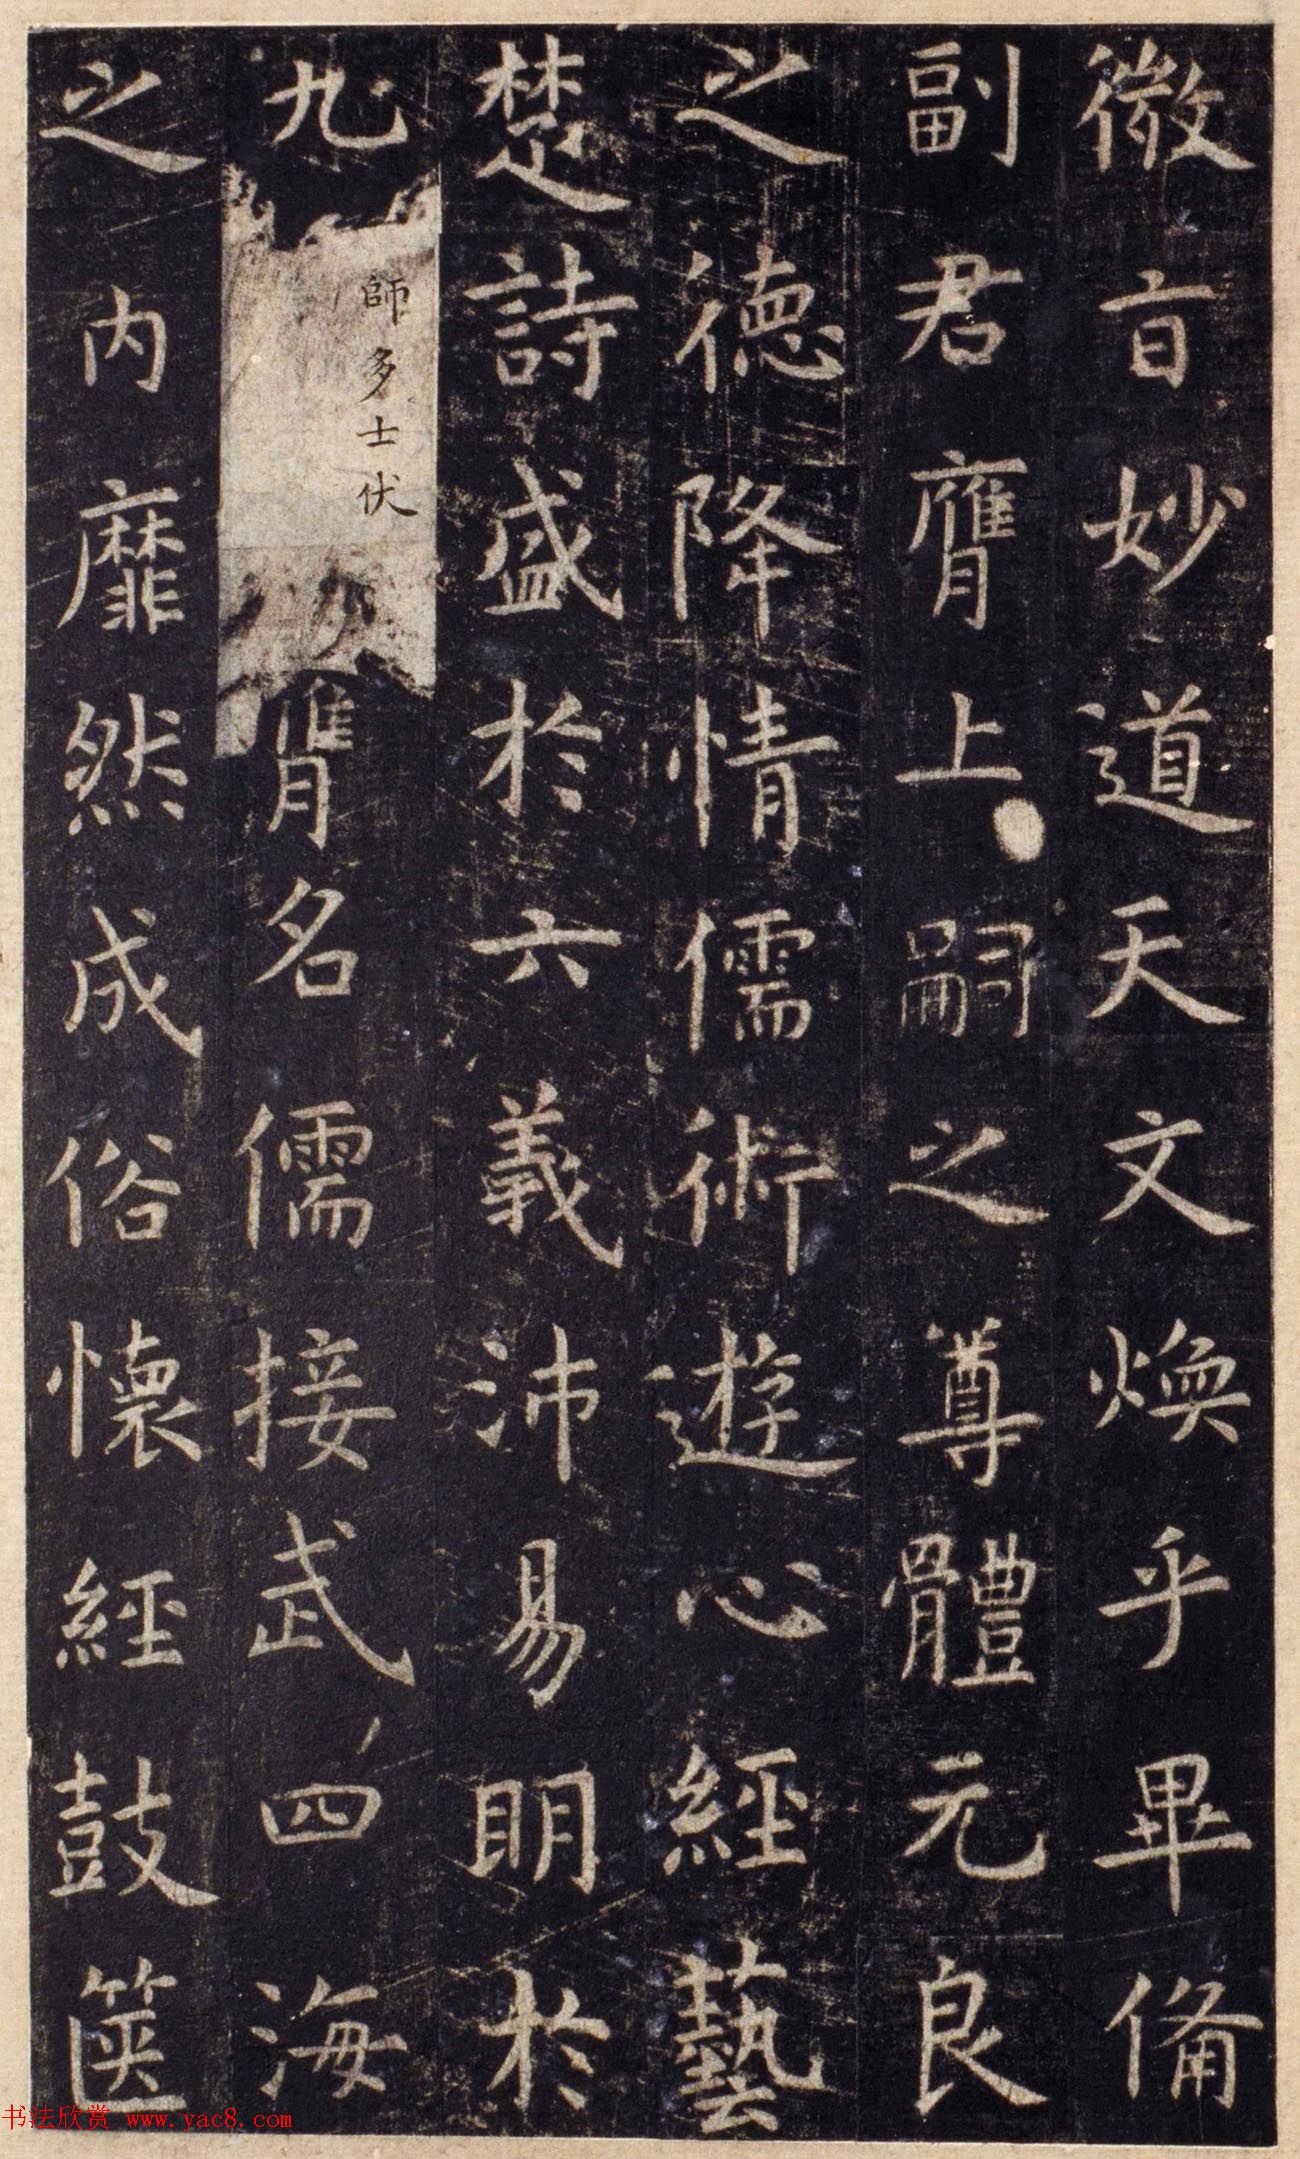 微旨妙道天文煥乎畢備
副君膺上嗣之尊體元良
之德降情儒術遊心經藝
楚詩盛於六義沛易明於
九
師多士伏
膺名儒接武四海
之內靡然成俗懷經鼓篋
书法欣赏 www.yac8.com